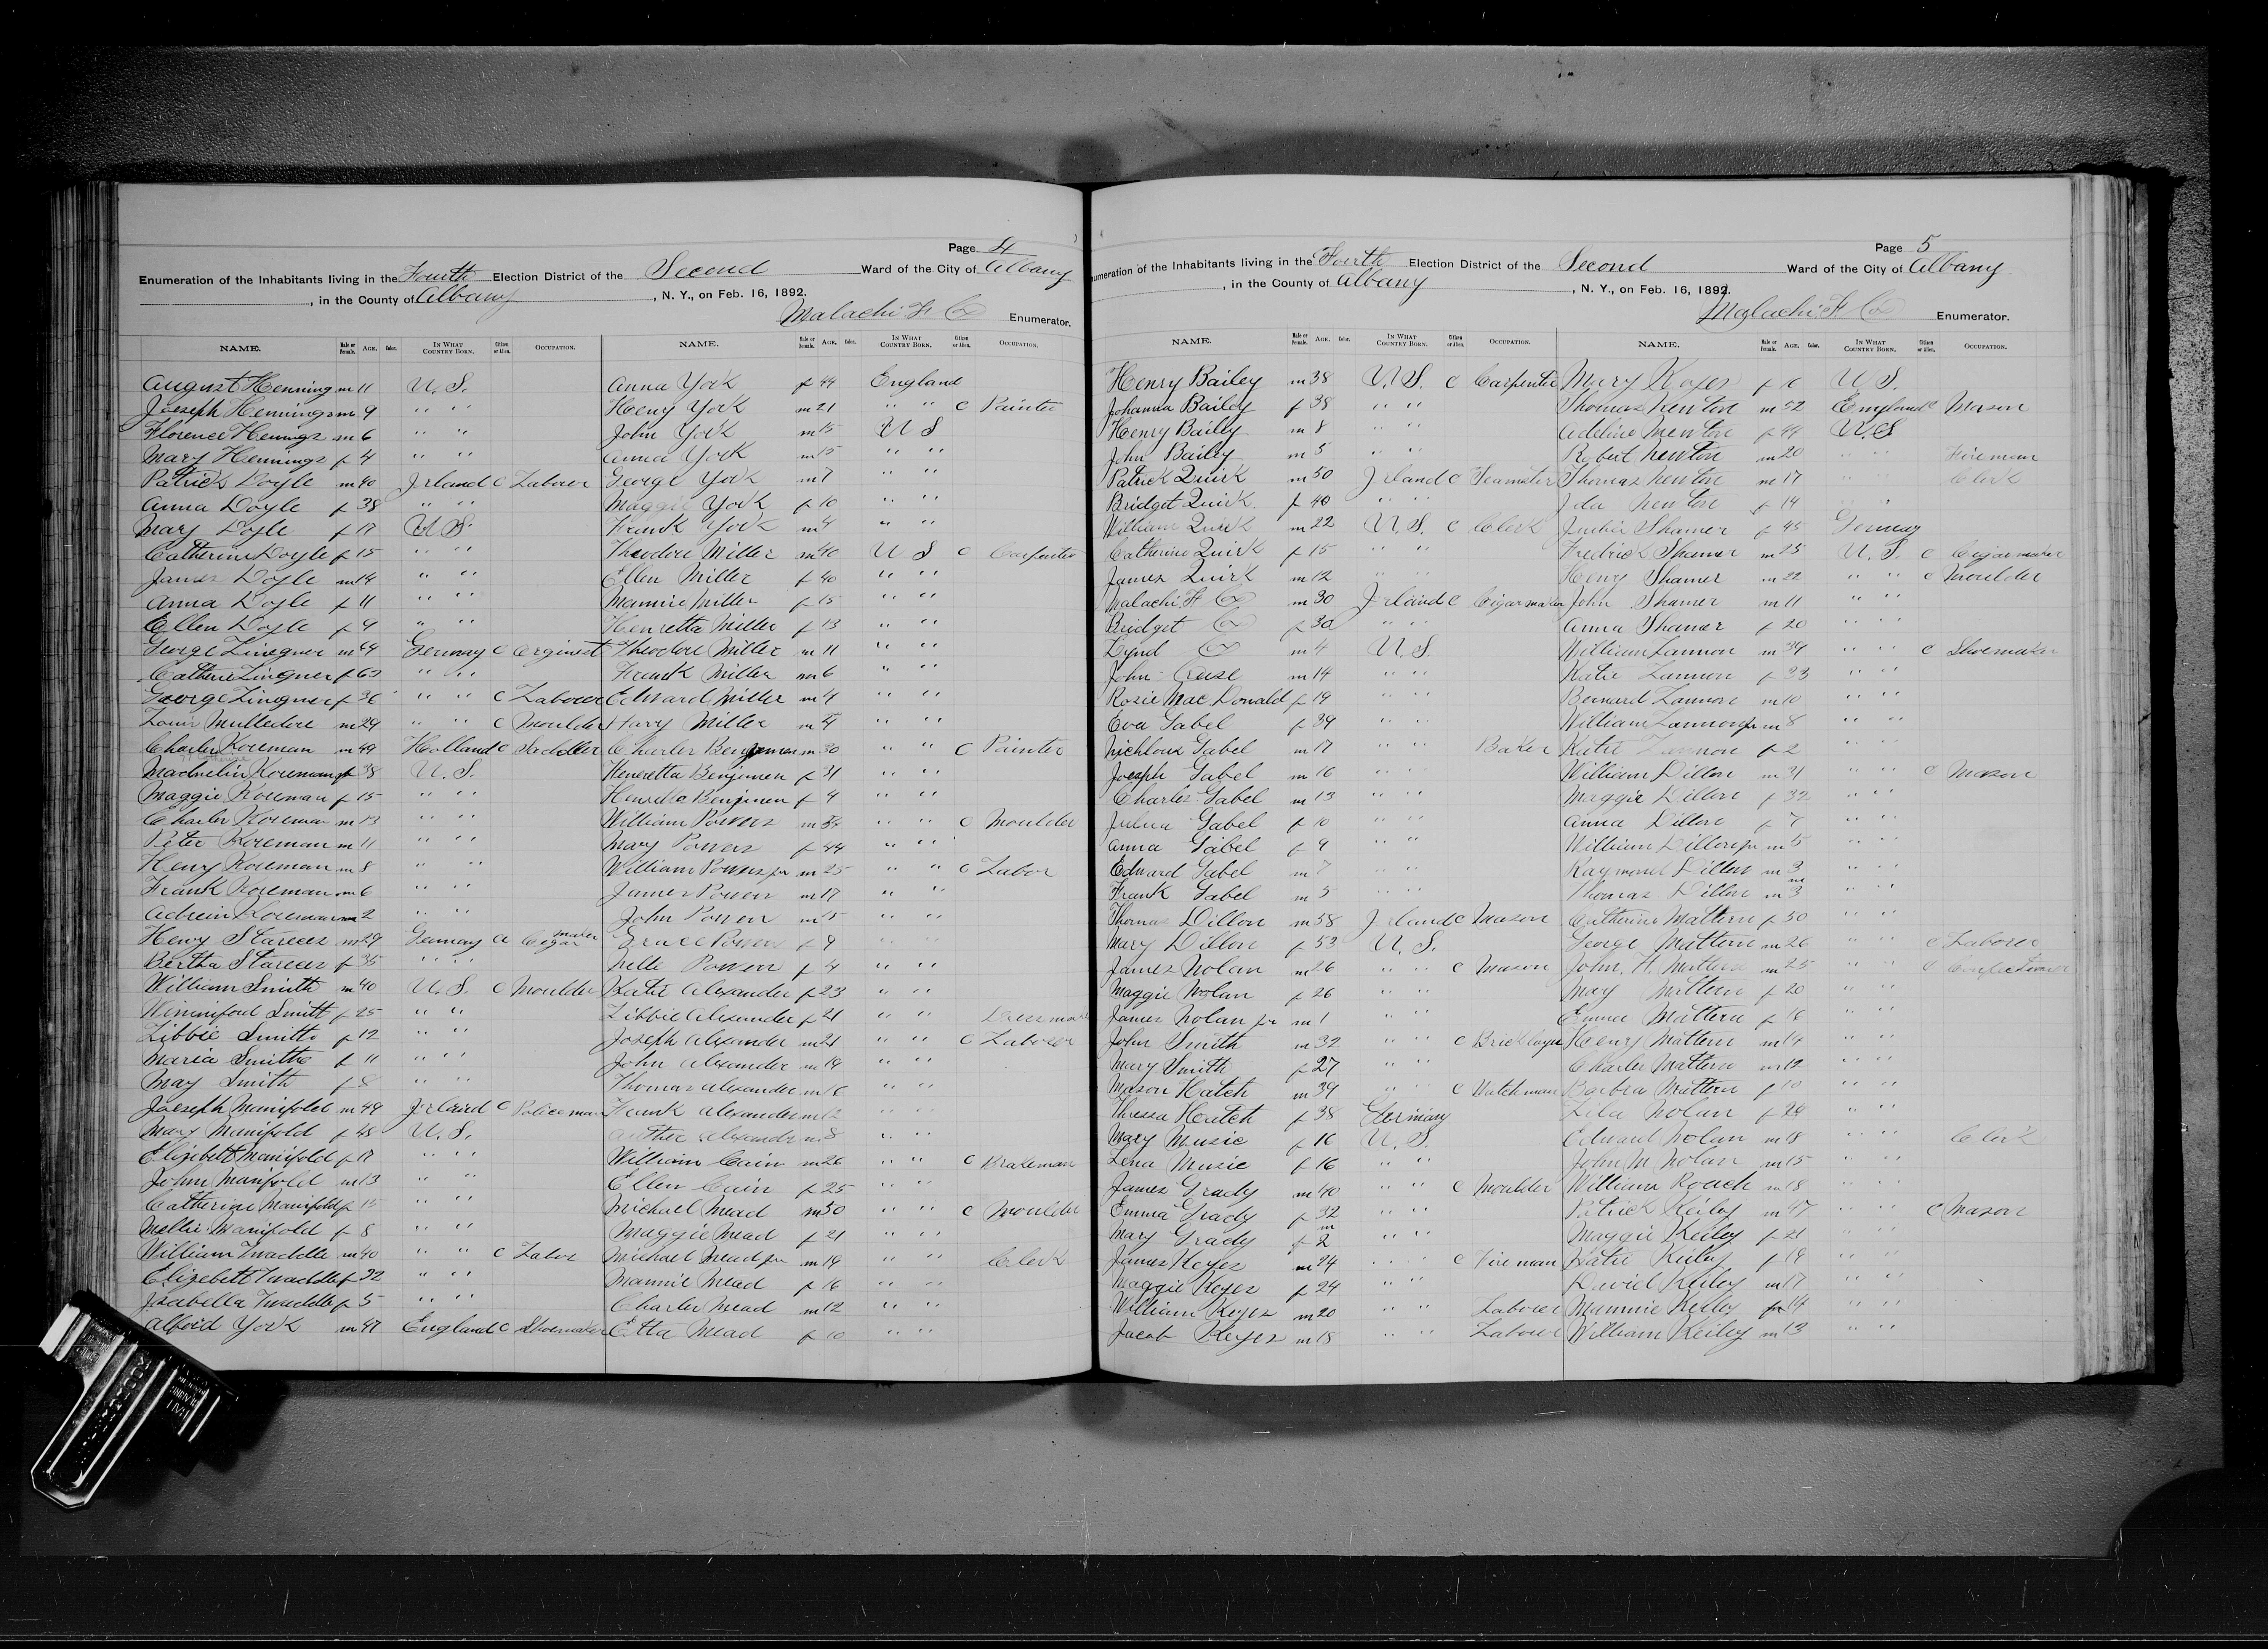 Page 4
Enumeration of the Inhabitants living in the Fourth Election District of the Second Ward of the City of Albany
, in the County of Albany , N. Y., on Feb. 16, 1892.
Malachi F. Cox Enumerator.
NAME. Male or Female. AGE. Color. IN WHAT COUNTRY BORN. Citizen or Alien. OCCUPATION.
August Henning m 11 U.S.
Joeseph Hennings m 9 " "
Florence Hennings m 6 " "
Mary Hennings f 4 " "
Patrick Doyle m 40 Irland C Laborer
Anna Doyle f 38 " "
Mary Doyle f 17 U.S.
Catherine Doyle f 15 " "
James Doyle m 14 " "
Anna Doyle f 11 " "
Ellen Doyle f 9 " "
George Zinegner m 44 Germay C orginest
Catherie Zingner f 63 " "
George Zingner f 36 " " C Laborer
Louis Mulledore m 29 " " C Moulder
Charles Koreman m 49 Holland C Saddler
Madnelin Koreman f 38 U.S.
Maggie Koreman f 15 " "
Charles Koreman m 13 " "
Peter Koreman m 11 " "
Henry Koreman m 8 " "
Frank Koreman m 6 " "
Adrein Koreman m 2 " "
Henry Stareces m 29 Germay a Cigar maker
Bertha Stareces f 35 " "
William Smith m 40 U.S. C Moulder
Winniford Smith f 25 " "
Libbie Smith f 12 " "
Maria Smith f 11 " "
May Smith f 8 " "
Joeseph Manifold m 49 Irland C Policeman
Mary Manifold f 48 U.S.
Elizebett Manifold f 17 " "
John Manifold m 13 " "
Catherine Manifold f 15 " "
Mellie Manifold f 8 " "
William Twaddle m 40 " " C Labor
Elizebett Twaddle f 32 " "
Isabella Twaddle f 5 " "
Alford York m 47 England C Shoemaker
NAME. Male or Female. AGE. Color. IN WHAT COUNTRY BORN. Citizen or Alien. OCCUPATION.
Anna York f 44 England
Heny York m 21 " " C Painter
John York m 15 U S
Anna York m 15 " "
George York m 7 " "
Maggie York f 10 " "
Frank York m 4 " "
Theodore Miller m 40 U S C Carpenter
Ellen Miller f 40 " "
Mamie Miller f 15 " "
Henretta Miller f 13 " "
Theodore Miller m 11 " "
Frank Miller m 6 " "
Edward Miller m 4 " "
Harry Miller m 4 " "
Charles Benjamen m 30 " " C Painter
Heneretta Benjimen f 31 " "
Benjimen f 4 " "
William Powers m 54 " " C Moulder
Mary Powers f 44 " "
William Powers jr m 25 " " C Labor
James Powers m 17 " "
John Powers m 15 " "
Grace Powers f 9 " "
Nelle Powers f 4 " "
Katie Alexander f 23 " "
Libbie Alexander f 21 " "
Joseph Alexander m 21 " " C Laborer
John Alexander m 19 " "
Thomas Alexander m 16 " "
Frank Alexander m 12 " "
Alexander m 8 " "
William Cain m 26 " " C Brakeman
Ellen Cain f 25 " "
Michael Mead m 50 " " C Moulder
Maggie Mead f 21 " "
Michael Mead jr m 19 " " Clerk
Mamie Mead f 16 " "
Charles Mead m 12 " "
Etta Mead f 10 " "
Page 5
Enumeration of the Inhabitants living in the Fourth Election District of the Second Ward of the City of Albany
, in the County of Albany , N. Y., on Feb. 16, 1892.
Malachi F. Cox Enumerator.
NAME. Male or Female. AGE. Color. IN WHAT COUNTRY BORN. Citizen or Alien. OCCUPATION.
Henry Bailey m 38 U.S. C Carpenter
Johanna Bailey f 38 " "
Henry Baily m 8 " "
John Baily m 5 " "
Patrick Quirk m 50 Irland C Teamster
Bridget Quirk f 40 " "
William Quirk m 22 U.S. C Clerk
Catherine Quirk f 15 " "
James Quirk m 12 " "
Malachi F Cox m 30 Irland C Cigarmaker
Bridget Cox f 30 " "
Lynd Cox m 4 U.S.
John Cruse m 14 " "
Rosie MacDonald f 19 " "
Eva Gabel f 39 " "
Nichlous Gabel m 17 " " Baker
Joeseph Gabel m 16 " "
Charles Gabel m 13 " "
Julua Gabel f 10 " "
Anna Gabel f 9 " "
Edward Gabel m 7 " "
Frank Gabel m 5 " "
Thomas Dillon m 58 Irland C Mason
Mary Dillon f 53 U.S.
James Nolan m 26 " " C Mason
Maggie Nolan f 26 " "
James Nolan jr m 1 " "
John Smith m 32 " " C Bricklayer
Mary Smith f 27 " "
Mason Hatch m 39 " " C Watchman
Thressa Hatch f 38 Germany
Mary Music f 16 U.S.
Lena Music f 16 " "
James Grady m 40 " " C Moulder
Emma Grady f 32 " "
Mary Grady f 2 m " "
James Keyes m 24 " " C Fireman
Maggie Keyes f 24 " "
William Keyes m 20 " " Laborer
Jacob Keyes m 18 " " Laborer
NAME. Male or Female. AGE. Color. IN WHAT COUNTRY BORN. Citizen or Alien. OCCUPATION.
Mary Keyes f U S.
Thomas Newton m 52 England C Mason
Adeline Newton f 44 U.S
Robert Newton m 20 " " Fireman
Thomas Newton m 17 " " Clerk
Ida Newton f 14 " "
Shamer f 45 Germay
Fredrick Shamer m 25 U.S. C Cigarmaker
Henry Shamer m 22 " " C Moulder
John Shamer m 11 " "
Anna Shamer f 20 " "
William Lannon m 39 " " C Shoemaker
Katie Lannon f 33 " "
Bernard Lannon m 10 " "
William Lannon jr m 8 " "
Katie Lannon f 2 " "
William Dillon m 31 " " C Mason
Maggie Dillon f 32 " "
Anna Dillon f 7 " "
William Dillon jr m 5 " "
Raymond Dillon m 3 " "
Thomas Dillon m 3 m " "
Catherine Mattern f 50 " "
George Mattern m 26 " " C Laborer
John H. Mattern m 25 " " C Confectioner
May Mattern f 20 " "
Emma Mattern f 16 " "
Henry Mattern m 14 " "
Charles Mattern m 12 " "
Barbra Mattern f 10 " "
Lila Nolan f 29 " "
Edward Nolan m 18 " " Clerk
John M Nolan m 15 " "
William Roach m 18 " "
Patrick Keiley m 47 " " C Mason
Maggie Keiley f 21 " "
Katie Keiley f 19 " "
David Keiley m 17 " "
Mammie Keiley f 14 " "
William Keiley m 13 " "